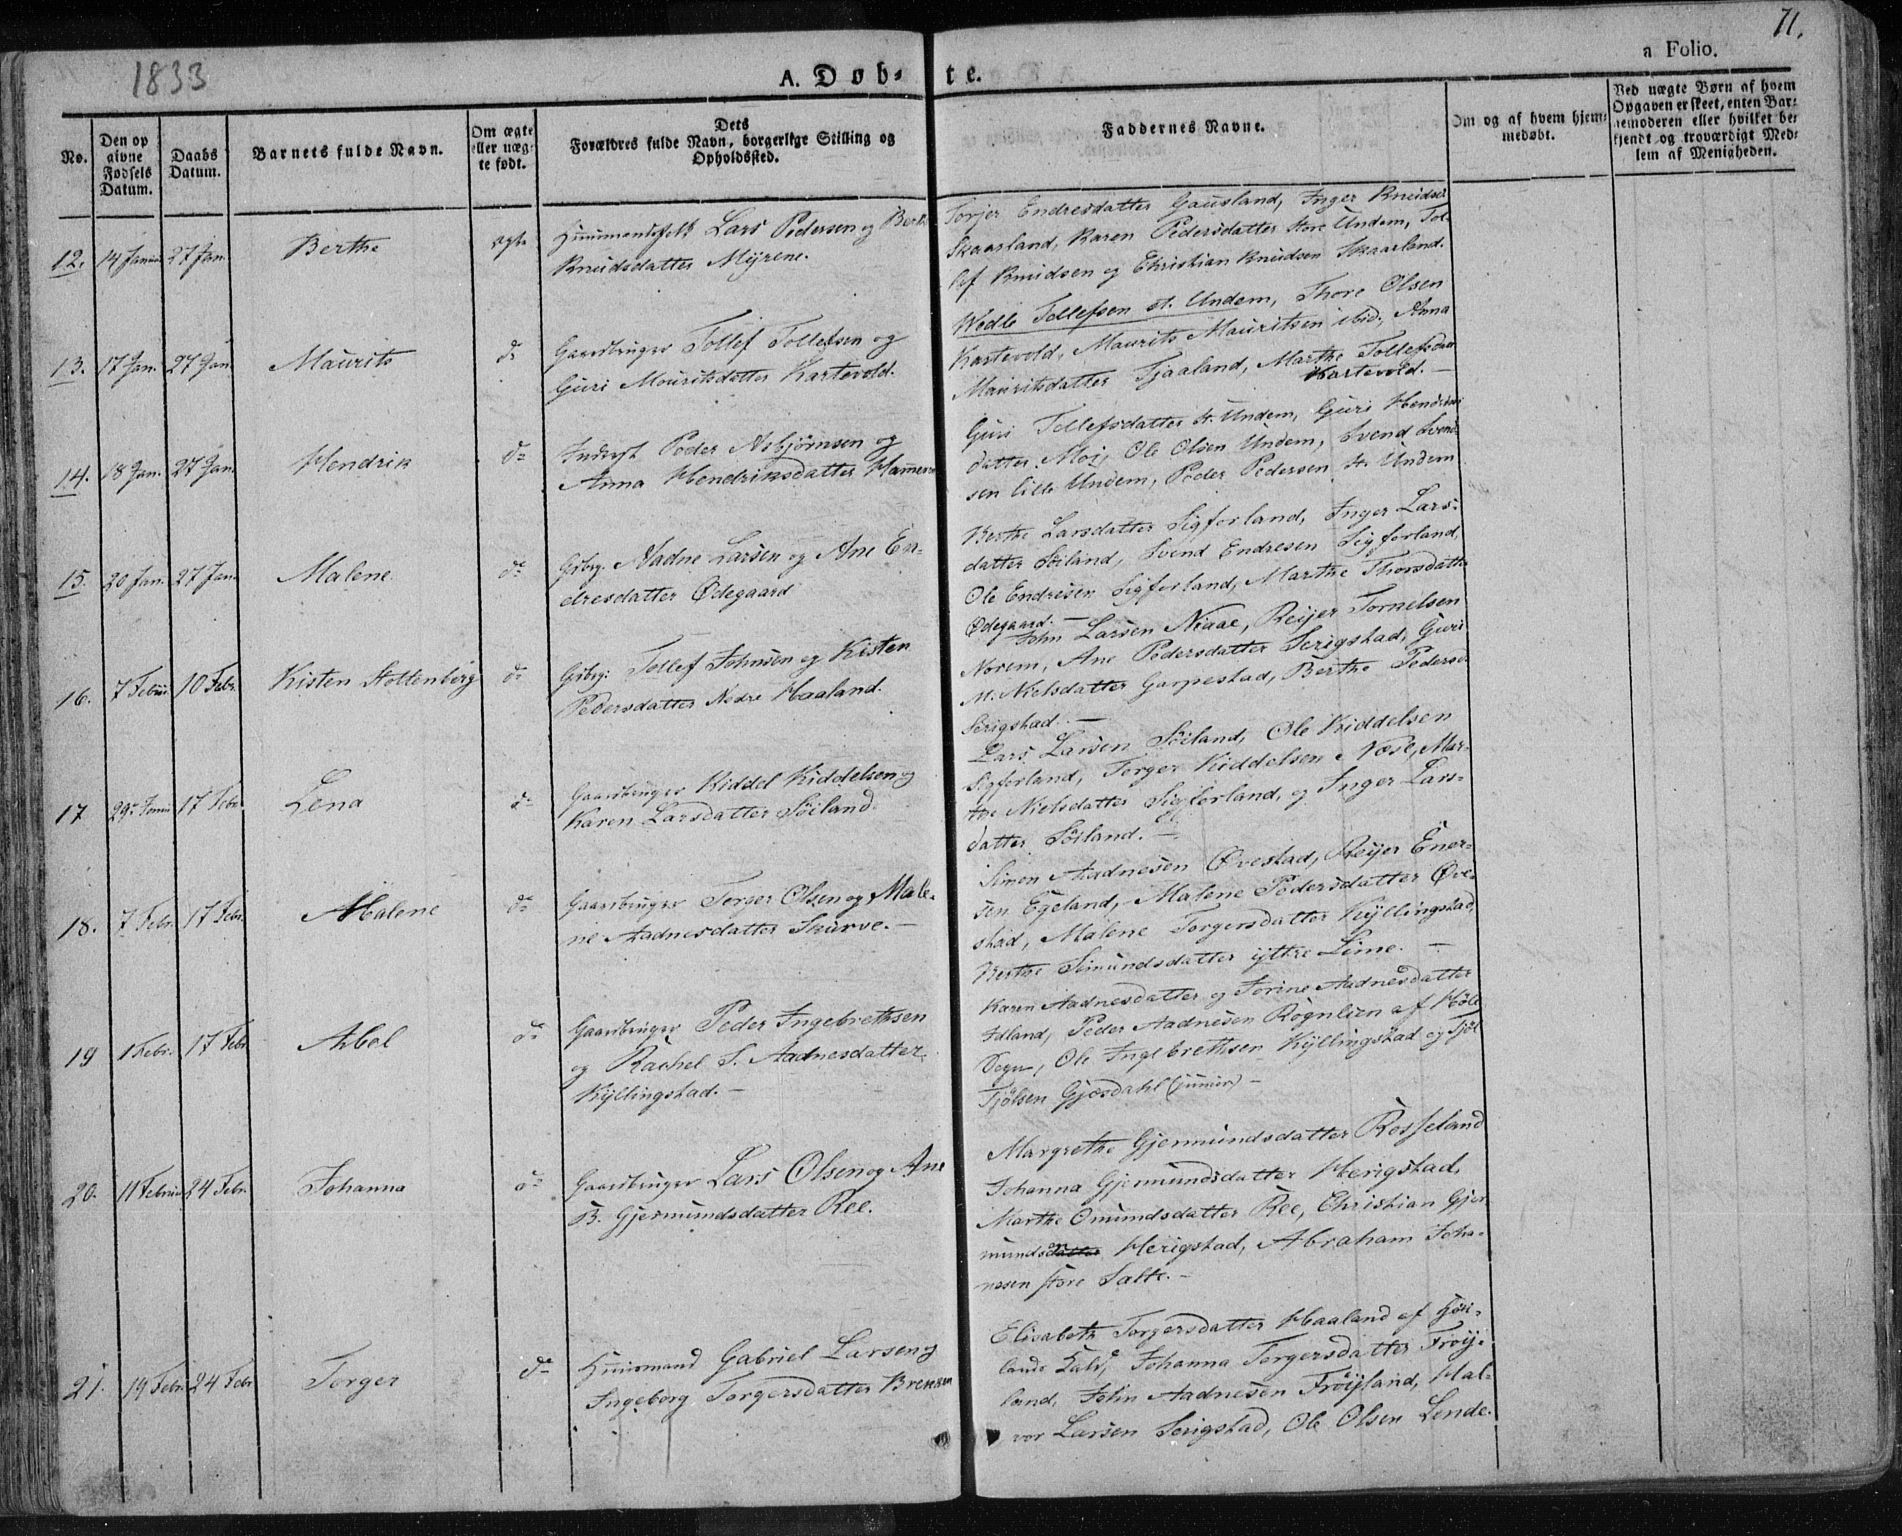 71.
1833
A. Døb-te.
a Folio.
No.
Den op
givne
Fødsels
Datum.
Daabs
Datum.
Barnets fulde Navn.
Om ægte
eller uæg-
te født.
Dets
Forældres fulde Navn, borgerlige Stilling og
Opholdssted.
Faddernes Navne.
Om og af hvem hjem-
medøbt.
Ved uægte Børn af hvem
Opgaven er skeet, enten Bar-
nemoderen eller hvilket be-
kjendt og troværdigt Med-
lem af Menigheden.
12. 14 Januar 27 Jan. Berthe ægte Huusmandsfolk Lars Pedersen og Berthe
Knudsdatter Myrene.
Torjer Endresdatter Gausland, Inger Knudsd.
Skaarland, Karen Pedersdatter store Undem, Tol-
lef Knudsen og Christian Knudsen Skaarland.
13. 17 Jan. 27 Jan. Maurits do Gaardbruger Tollef Tollefsen og
Guri Mouritsdatter Kartevold.
Wedle Tollefsen st. Undem, Thore Olsen
Kartevold, Maurits Mauritsen ibid, Anna
Mauritsdatter Tjaaland, Marthe Tollefsdatter
Kartevold. —
14. 18 Jan. 27 Jan. Hendrik do Inderst Peder Asbjørnsen og
Anna Hendriksdatter Hammeren
Guri Tollefsdatter st. Undem, Guri Hendriks
datter Moi, Ole Olsen Undem, Svend Svend-
sen lille Undem, Peder Pedersen st. Undem
15. 20 Jan. 27 Jan. Malene do Grbrg. Aadne Larsen og Ane En-
dresdatter Ødegaard
Berthe Larsdatter Sigferland, Inger Lars-
datter Söiland, Svend Endresen Sigferland,
Ole Endresen Sigferland, Marthe Thorsdatter
Ødegaard. —
16. 7 Februar 10 Febr. Kisten Stoltenberg do Grbrg. Tollef Johnsen og Kisten
Pedersdatter Nedre Haaland.
John Larsen Niaae, Reijer Tornelsen
Norem, Ane Pedersdatter Serigstad, Guri
M. Nielsdatter Garpestad, Berthe Pedersd.
Serigstad. —
17 29de Januar 17 Febr. Lena do Gaardbruger Kiddel Kiddelsen og
Karen Larsdatter Söiland.
Lars Larsen Söiland, Ole Kiddelsen
Sigferland, Torger Kiddelsen Nœse, Mar-
the Nielsdatter Sigferland, og Inger Lars-
datter Söiland. —
18. 7 Febr. 17 Febr. Malene do Gaardbruger Torger Olsen og Male-
ne Aadnesdatter Skurve. —
Simon Aadnesen Øvestad, Reijer Ener-
sen Egeland, Malene Pedersdatter Øve-
stad, Malene Torgersdatter Kyllingstad,
Berthe Simundsdatter yttre Lime. —
19 1 Febr. 17 Febr. Abel do Gaardbruger Peder Ingebrethsen
og Rachel S. Aadnesdatter
Kyllingstad. —
Karen Aadnesdatter og Torine Aadnesdatter
Idland, Peder Aadnesen Rögnlien af Höle
Sogn, Ole Ingebrethsen Kyllingstad og Tjöl
Tjölsen Gjesdahl (junior) —
20. 11 Februar 24 Febr. Johanna do Gaardbruger Lars Olsen og Ane
B. Gjermundsdatter Ree.
Margrethe Gjermundsdatter Rosseland
Johanna Gjermundsdatter Herigstad,
Marthe Omundsdatter Ree, Christian Gjer-
mundsen Herigstad, Abraham Joha-
nesen store Salte. —
21. 19 Febr. 24 Febr. Torger do Huusmand Gabriel Larsen og
Ingeborg Torgersdatter Brekken
Elisabeth Torgersdatter Haaland af Höi-
lands Sogn, Johanna Torgersdatter Fröy-
land, John Aadnesen Fröyland, Hal-
vor Larsen Serigstad, Ole Olsen Lende.